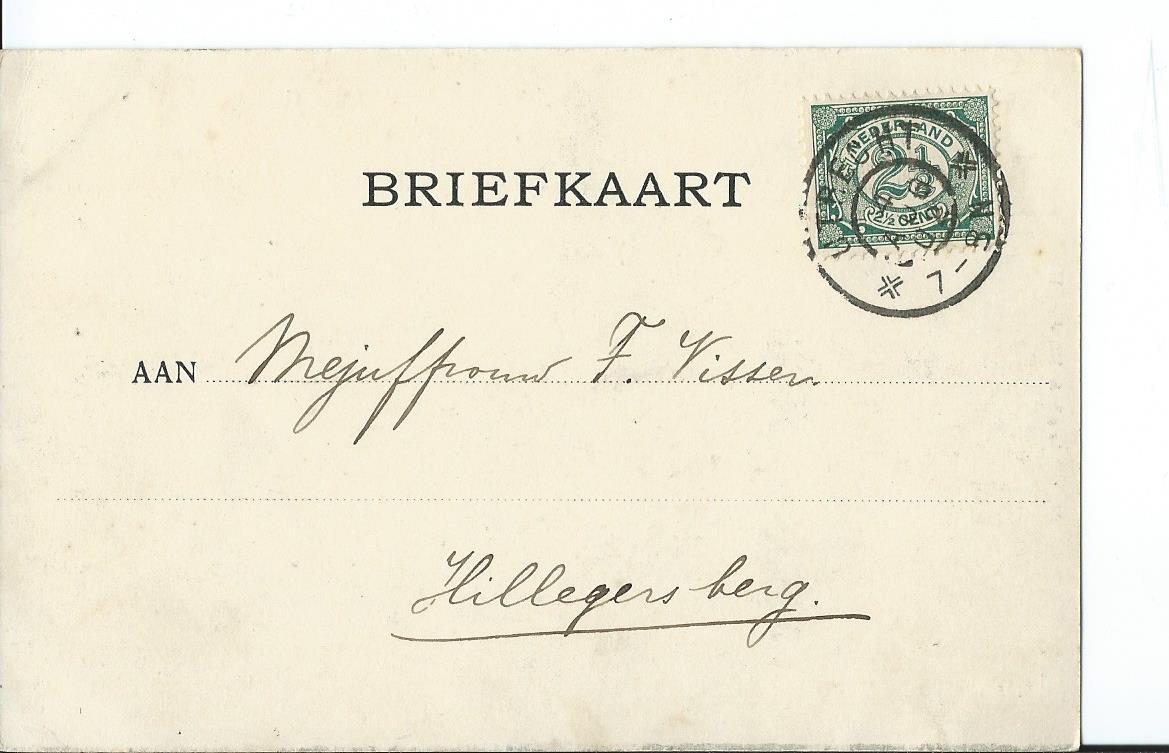 BRIEFKAART
NEDERLAND
2½
2½ CENT
UTRECHT
7-8N
AAN Mejuffrouw F. Visser.
Hillegersberg.